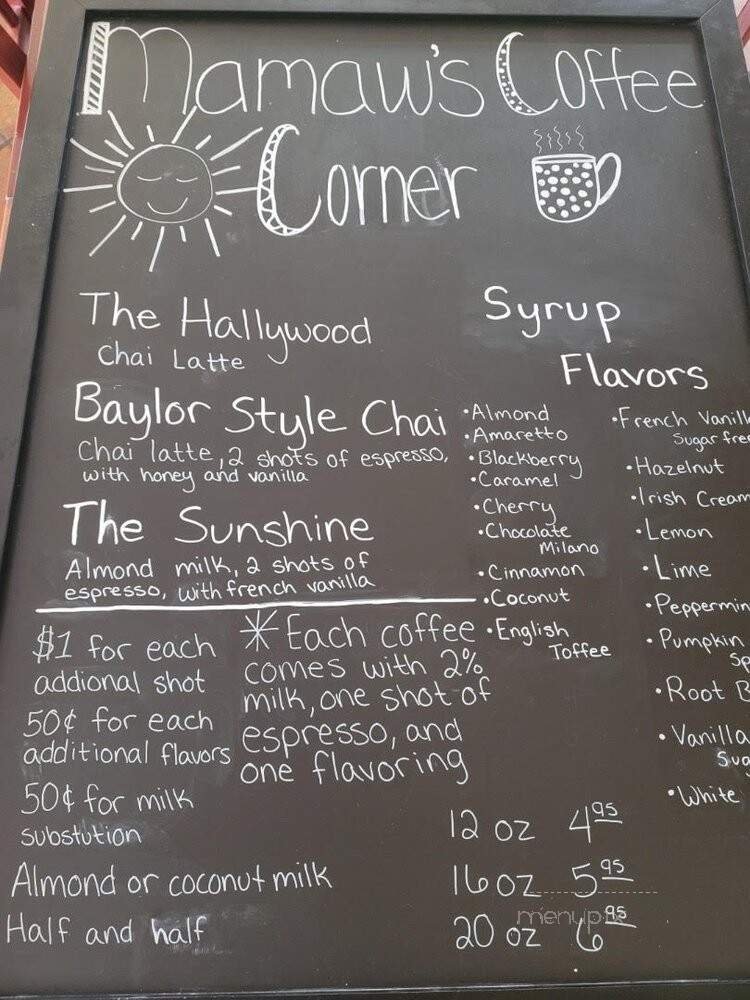 Mamaw's Coffee
Corner
The Hallywood
Chai Latte
Baylor Style Chai
Chai latte, 2 shots of espresso,
with honey and vanilla
The Sunshine
Almond milk, 2 shots of
espresso, with french vanilla
$1 for each
addional shot
50¢ for each
additional flavors
50¢ for milk
substution
Almond or coconut milk
Half and half
* Each coffee
comes with 2%
milk, one shot of
espresso, and
one flavoring
Syrup
Flavors
•Almond
•Amaretto
•Blackberry
•Caramel
•Cherry
•Chocolate
Milano
•Cinnamon
•Coconut
•English
Toffee
•French
•Hazelnut
•Irish Cream
•Lemon
•Lime
•Pumpkin
•Root
•Vanilla
•White
12 oz 4.95
16 oz 5.95
20 oz 6.95